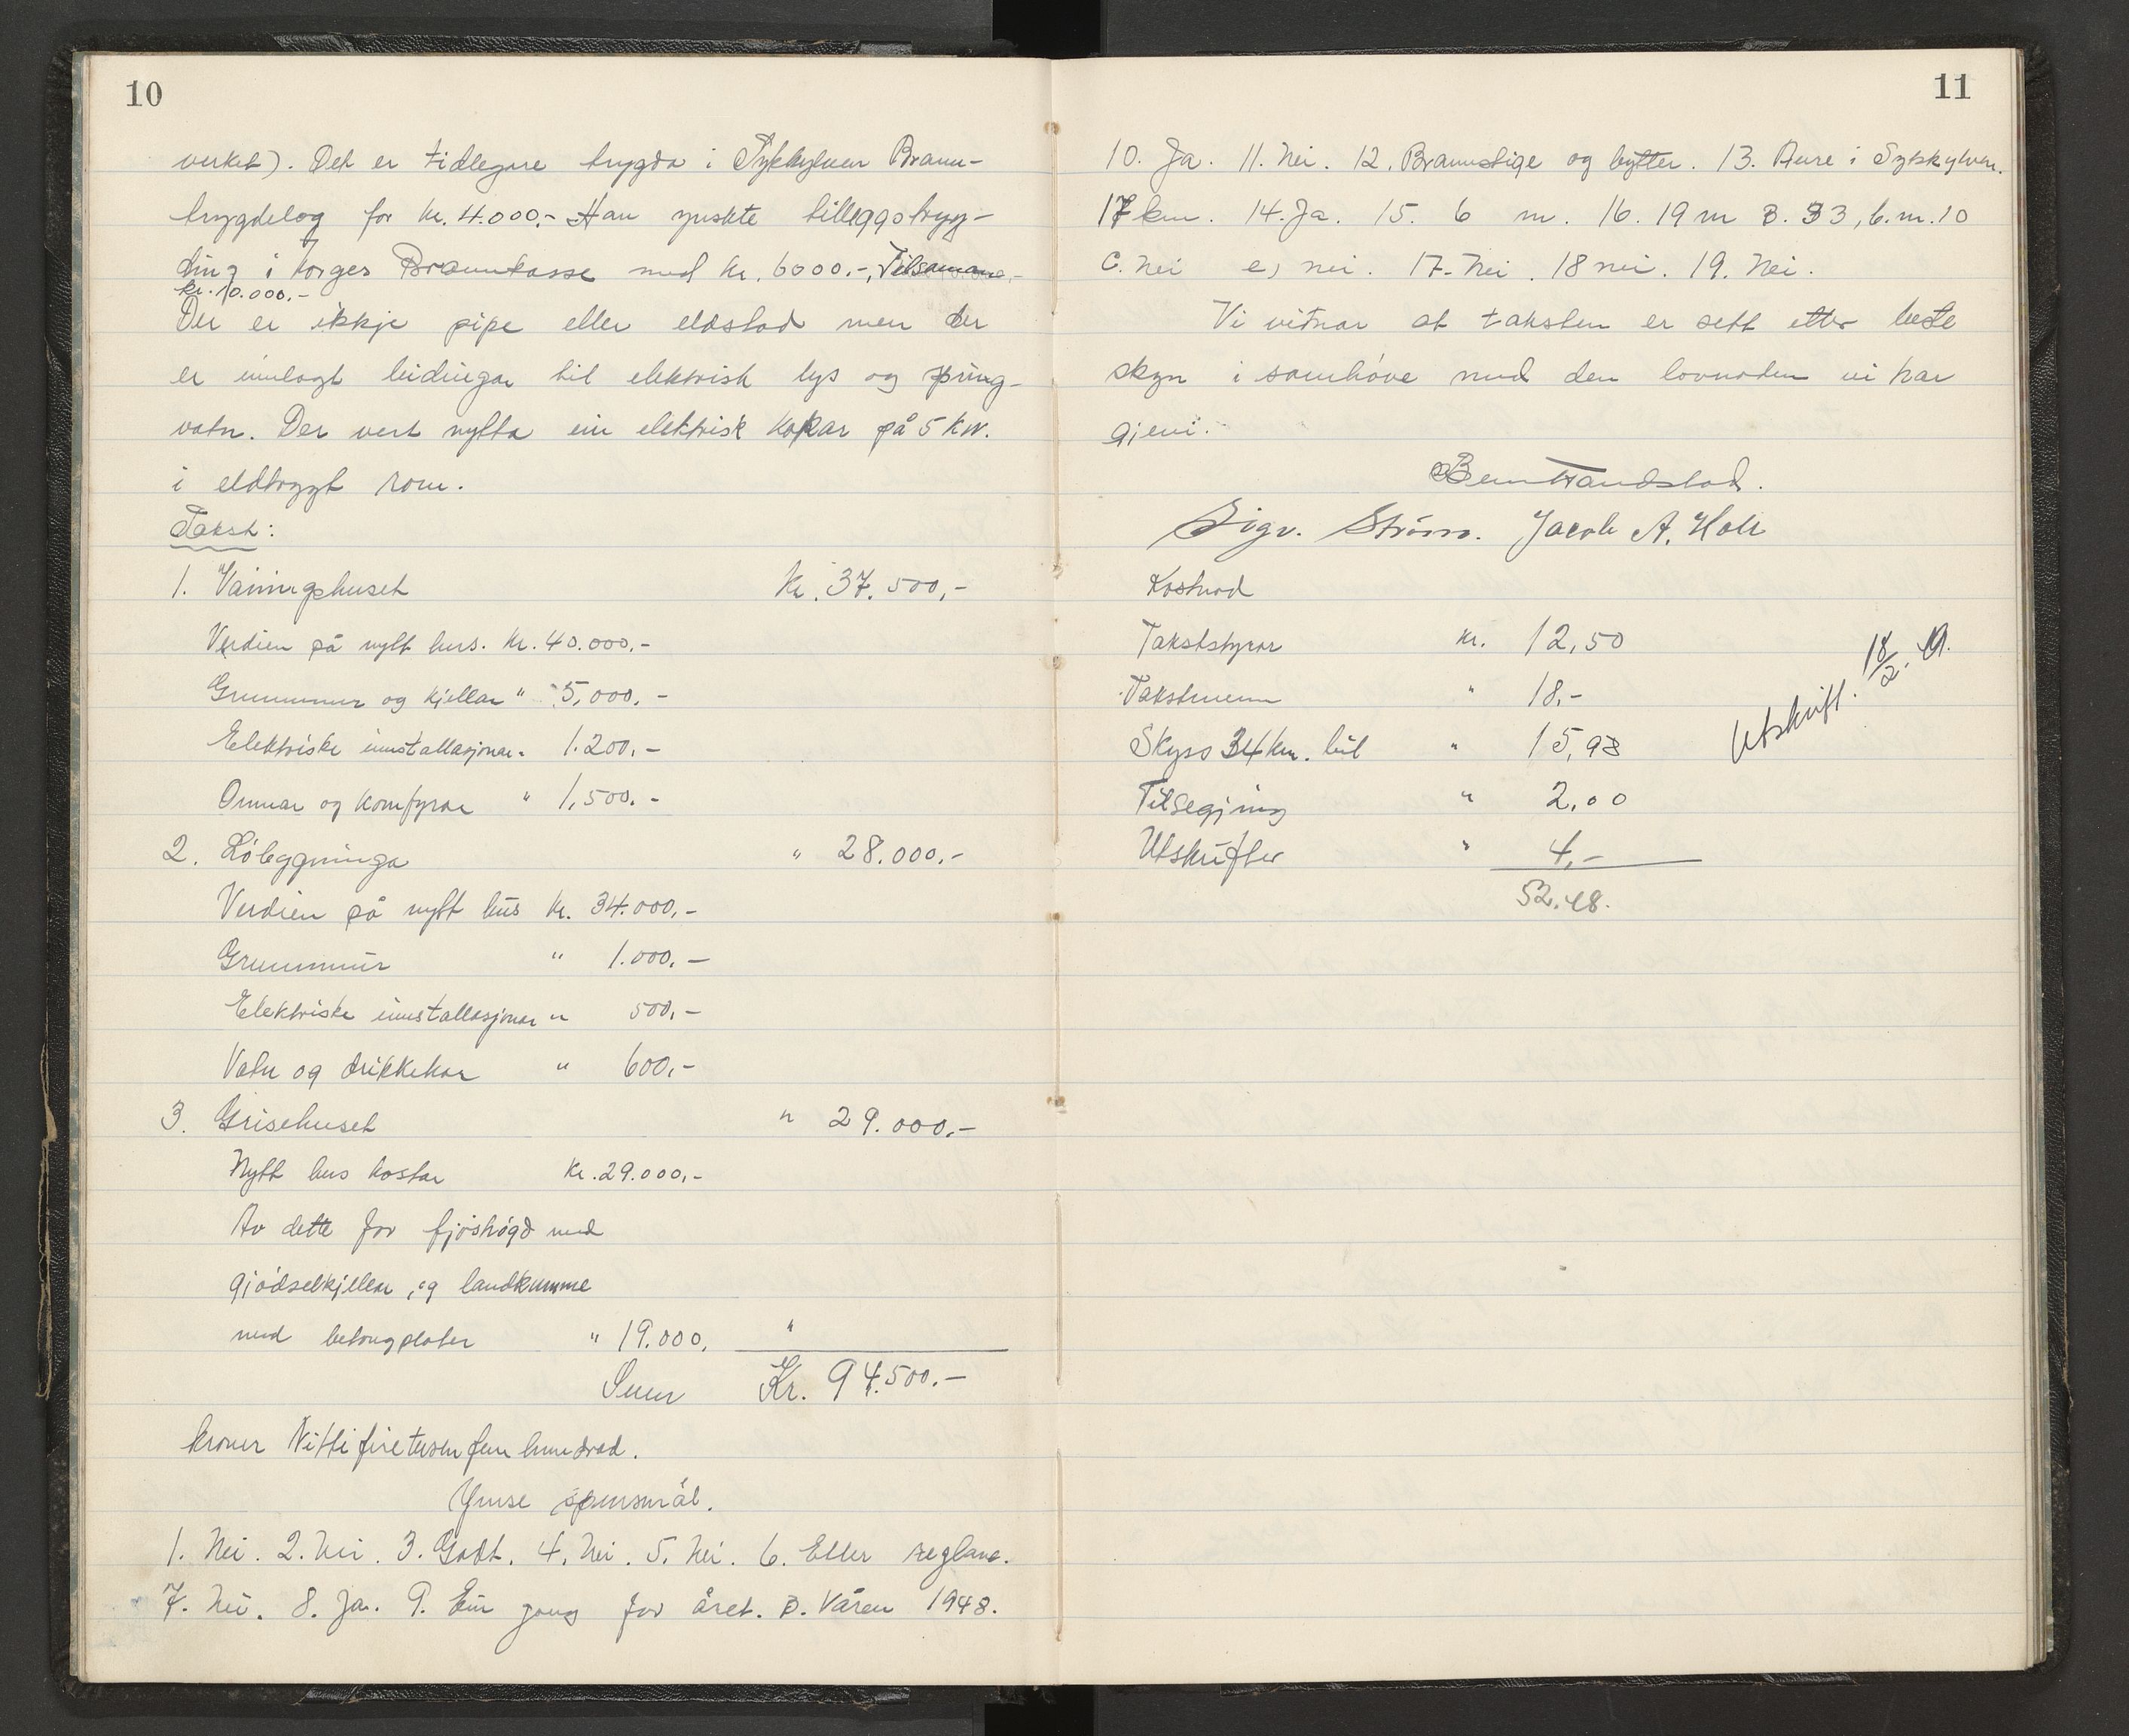 10
verket). Det er tidlegare trygda i Sykkylven Brann-
trygdelag for kr. 4.000.- Han ynskte tilleggstryg-
ding i Norges Brannkasse med kr. 6000.-, Tilsamans
kr. 10.000.-
Der er ikkje pipe eller eldstad men der
er innlagt leidingar til elektrisk lys og spring-
vatn. Der vert nytta ein elektrisk kokar på 5 kw.
i eldtrygt rom.
Takst:
1. Våningshuset kr. 37.500,-
Verdien på nytt hus. kr. 40.000.-
Grunnmur og kjellar " 5,000,-
Elektriske innstallasjonar " 1.200,-
Omnar og komfyrar " 1,500.-
2. Løbyggninga " 28.000.-
Verdien på nytt hus kr. 34.000,-
Grunnmur " 1.000,-
Elektriske innstallasjonar " 500,-
Vatn og drikkekar " 600,-
3. Grisehuset " 29.000.-
Nytt hus kostar kr. 29.000,-
Av dette for fjøshøgd med
gjødselkjellar og landkumme
med betongplater " 19.000, "
Sum Kr. 94.500.-
kroner Nittifiretusenfemhundrad.
Ymse spursmål.
1. Nei. 2. Nei. 3. Godt. 4. Nei. 5. Nei. 6. Etter reglane.
7. Nei. 8. Ja. 9. Ein gong for året. B. Våren 1948.
11
10. Ja. 11. Nei. 12. Brannstige og bytter. 13. Aure i Sykkylven.
17 km. 14. Ja. 15. 6 m. 16. 19 m B. 33, 6. m. 10
C. Nei e) nei. 17. Nei. 18 nei. 19. Nei.
Vi vitnar at taksten er sett etter beste
skyn i samhøve med den lovnaden vi har
gjevi.
Bernt Tandstad.
Sigv. Strøm. Jacob A. Hole
Kostnad
Takststyrar kr. 12,50
Takstmenn " 18,-
Skyss 34 km. bil " 15,98
Tilsegjing " 2,00
Utskrifter " 4,-
52.48.
Utskrift. 18/2. 49.